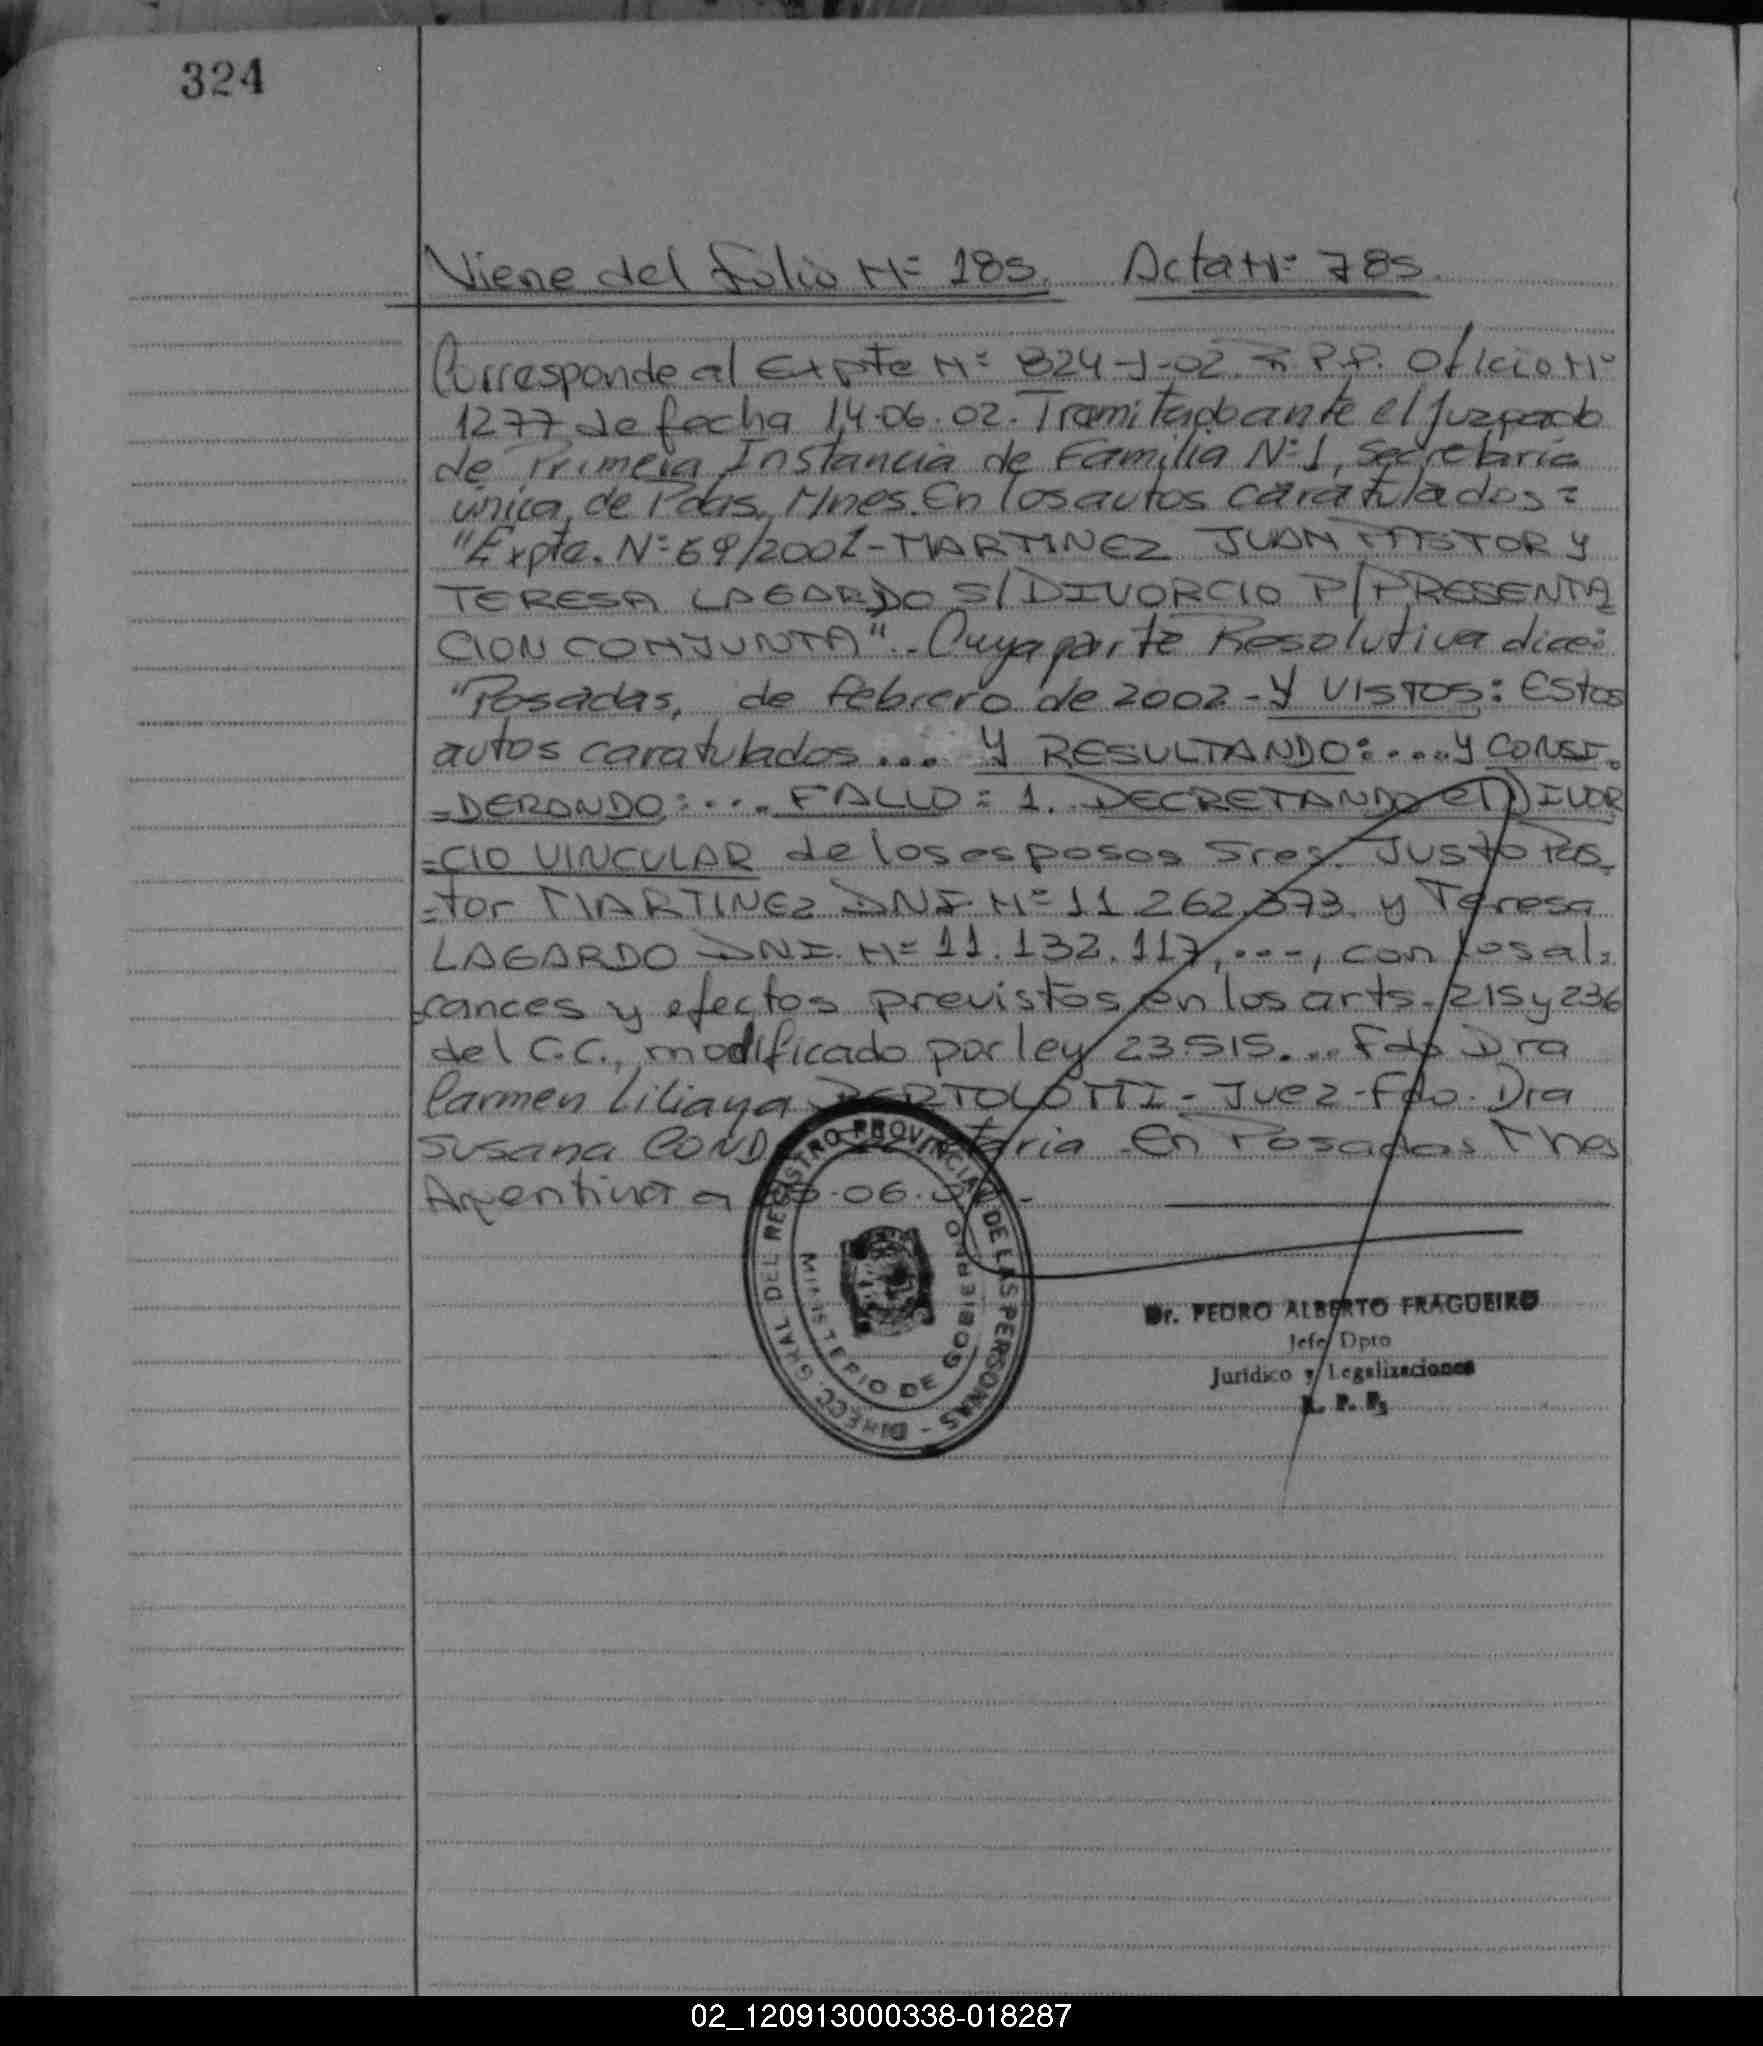 324
Viene del folio Nº 185. Acta Nº 785.
Corresponde al Expte Nº 824-J-02. R.P.P. Oficio Nº
1277 de fecha 14.06.02. Tramitado ante el Juzgado
de Primera Instancia de Familia Nº 1, Secretaria
única, de Pdas. Mnes. En los autos caratulados:
"Expte. Nº 69/2001-MARTINEZ JUAN PASTOR y
TERESA LAGARDO S/DIVORCIO P/PRESENTA
CION CONJUNTA". Cuya parte Resolutiva dice:
"Posadas, de febrero de 2002 - Y VISTOS: Estos
autos caratulados ... Y RESULTANDO: .... y CONSI-
=DERANDO: .... FALLO: 1. DECRETANDO el DIVOR
=CIO VINCULAR de los esposos Sres. Justo Pas-
=tor MARTINEZ DNI Nº 11.262.373. y Teresa
LAGARDO DNI. Nº 11.132.117, ..., con los al=
=cances y efectos previstos en los arts. 215 y 236
del C.C., modificado por ley 23.515. ... Fdo Dra
Carmen Liliana BERTOLOTTI - Juez - Fdo. Dra
Susana COND En Posadas Mnes
Argentina a .06.
DIRECC. GRAL. DEL REGISTRO PROVINCIAL DE LAS PERSONAS -
MINISTERIO DE GOBIERNO
Dr. PEDRO ALBERTO FRAGUEIRO
Jefe Dpto
Jurídico y Legalizaciones
R. P. P.
02_120913000338-018287